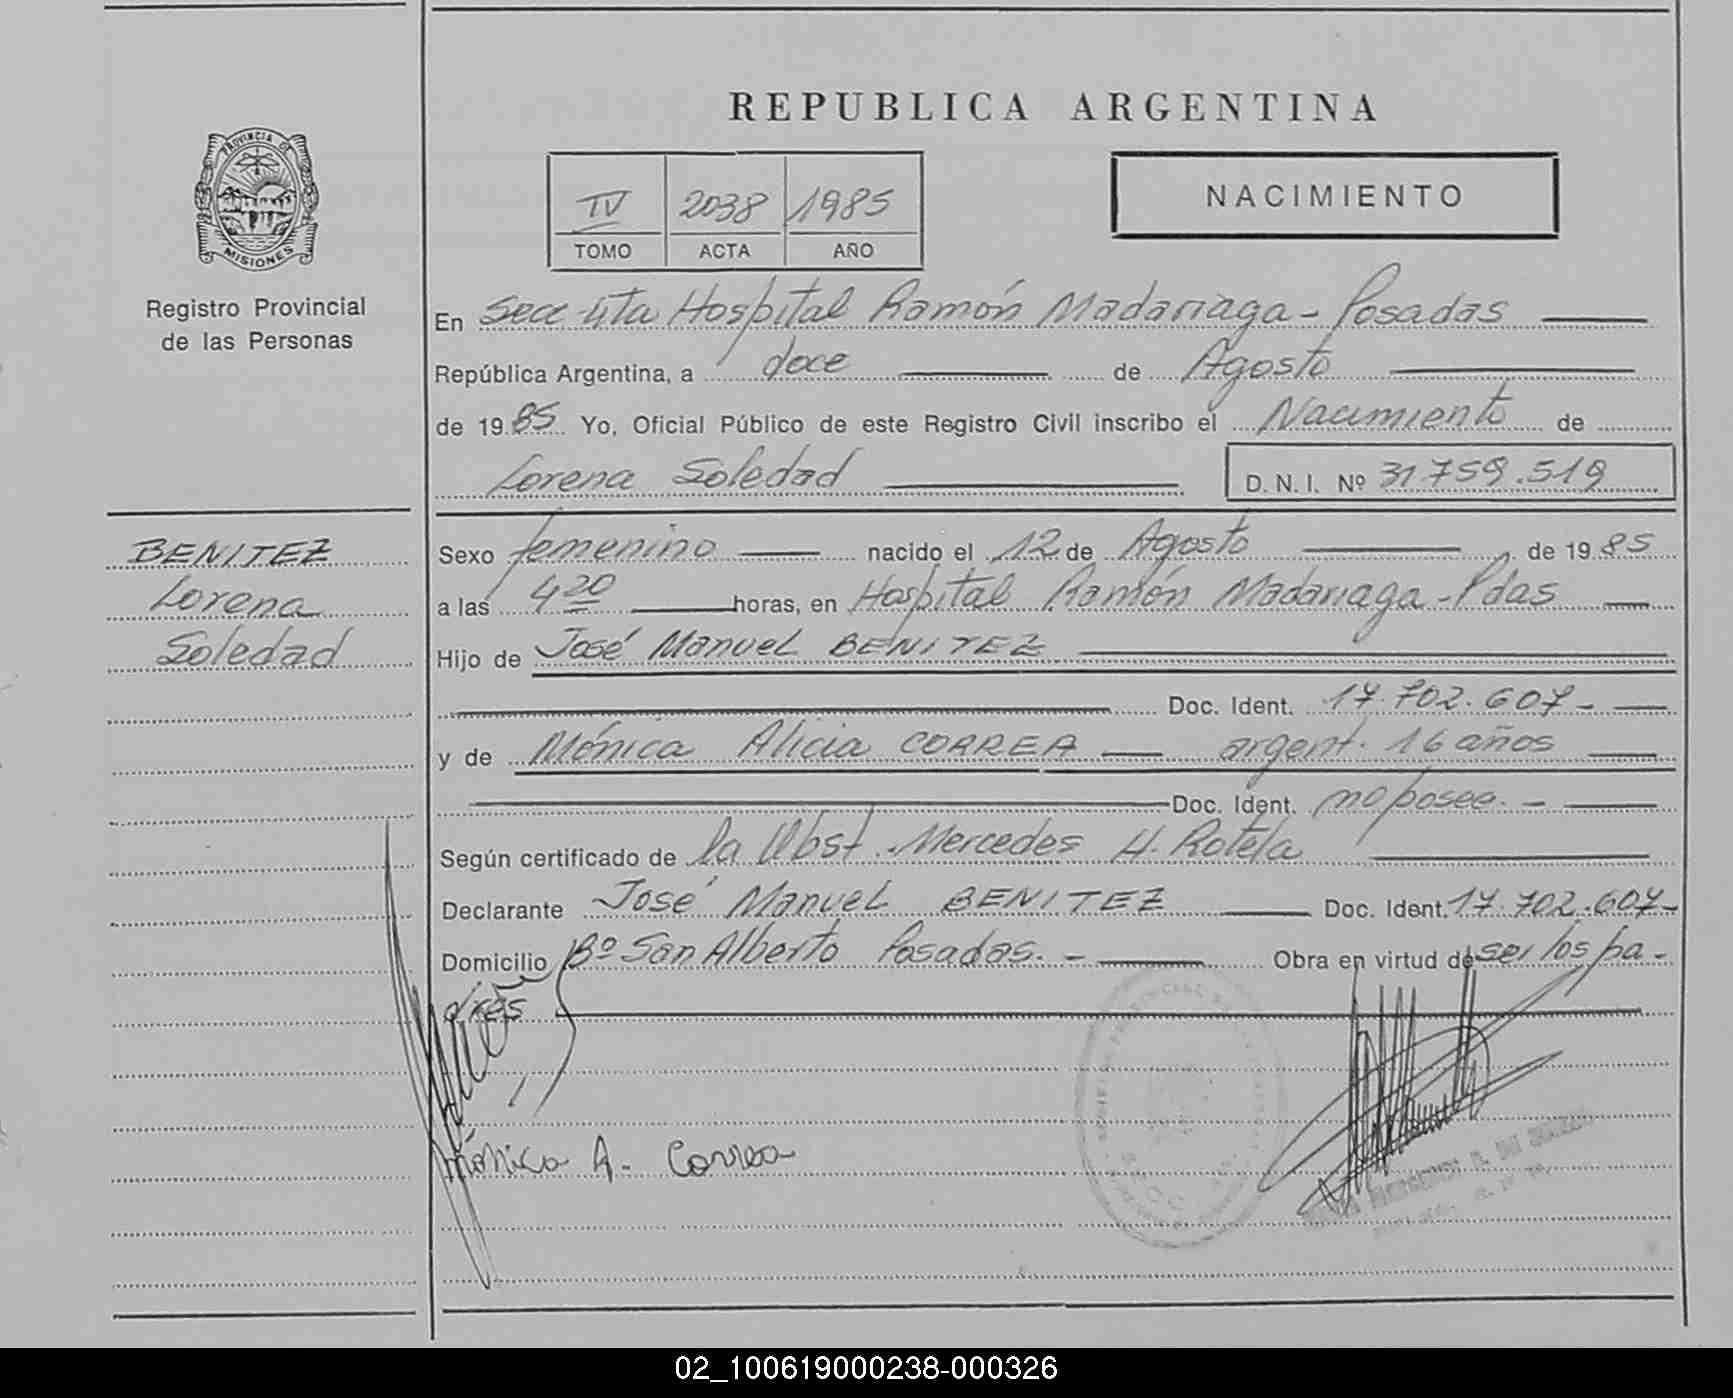 REPUBLICA ARGENTINA
PROVINCIA DE
MISIONES
Registro Provincial
de las Personas
IV 2038 1985
TOMO ACTA AÑO
NACIMIENTO
En Secc 4ta Hospital Ramón Madariaga - Posadas
República Argentina, a doce de Agosto
de 1985 Yo, Oficial Público de este Registro Civil inscribo el Nacimiento de
Lorena Soledad D. N. I. Nº 31.759.519
BENITEZ
Lorena
Soledad
Sexo femenino nacido el 12 de Agosto de 1985
a las 4 20 horas, en Hospital Ramón Madariaga - Pdas
Hijo de José Manuel BENITEZ
Doc. Ident. 17.702.607 -
y de Mónica Alicia CORREA argent. 16 años
Doc. Ident. no posee. -
Según certificado de la Obst. Mercedes H. Rotela
Declarante José Manuel BENITEZ Doc. Ident. 17.702.607 -
Domicilio Bº San Alberto Posadas. - Obra en virtud de ser los pa-
dres
Mónica A. Correa
02_100619000238-000326